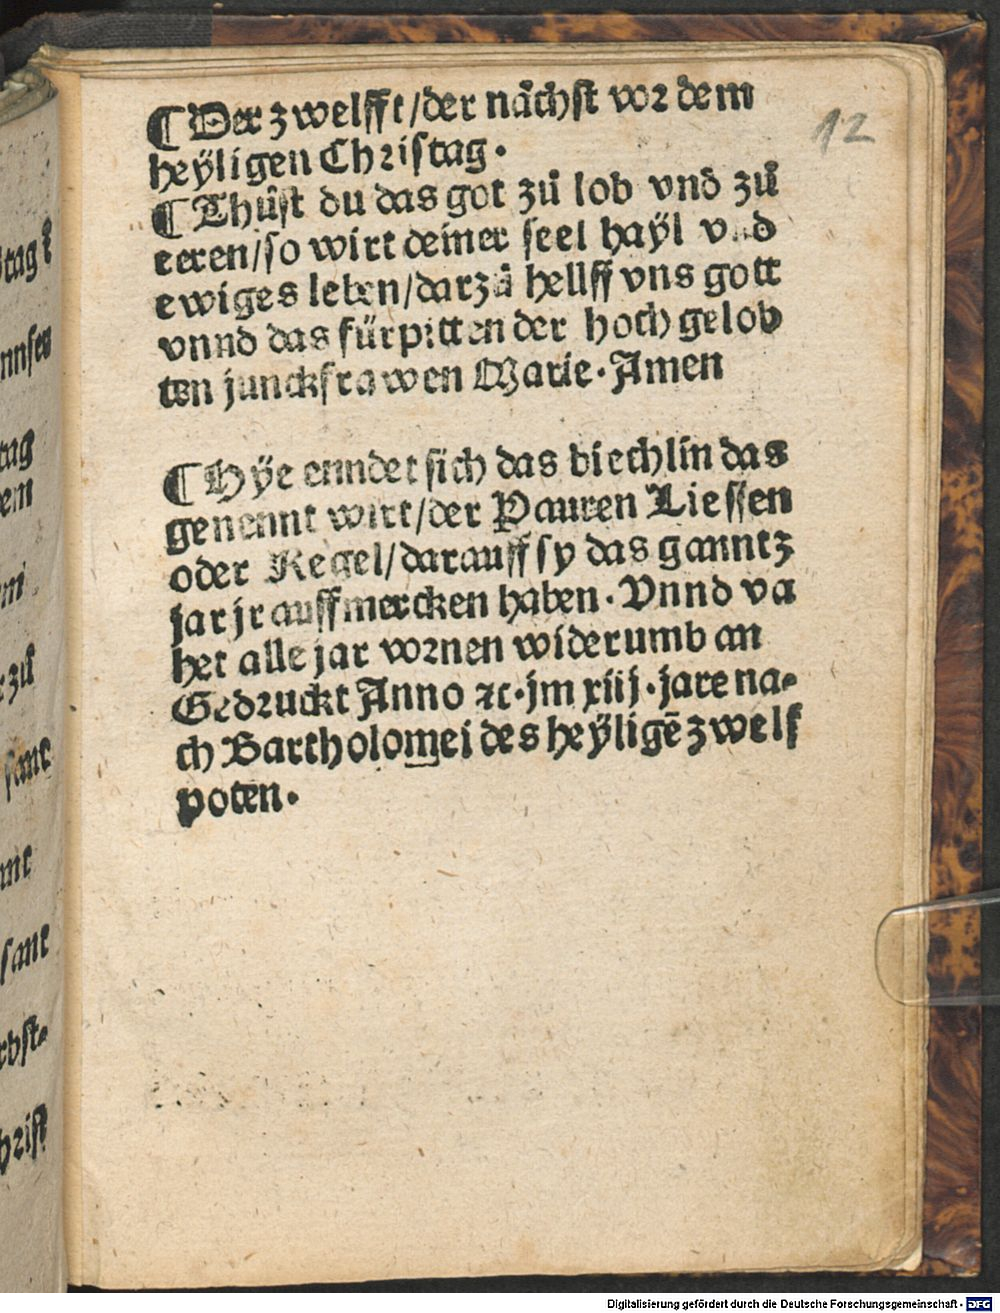 12
¶ Der zwelfft/der nåchst vor dem
heÿligen Christag.
¶ Thůst du das got zů lob vnd zů
eeren/so wirt deiner seel haÿl vnd
ewiges leben/darzů hellff vns gott
vnnd das fürpitten der hochgelob
ten junckfrawen Marie. Amen
¶ Hÿe enndet sich das biechlin das
genennt wirt/der Pauren Liessen
oder Regel/darauff sy das ganntz
jar jr auffmercken haben. Vnnd va
het alle jar vornen widerumb an
Gedruckt Anno ⁊c. jm xiij. jare na-
ch Bartholomei des heÿligē zwelf
poten.
stag
tag
sant
sant
Digitalisierung gefördert durch die Deutsche Forschungsgemeinschaft - DFG